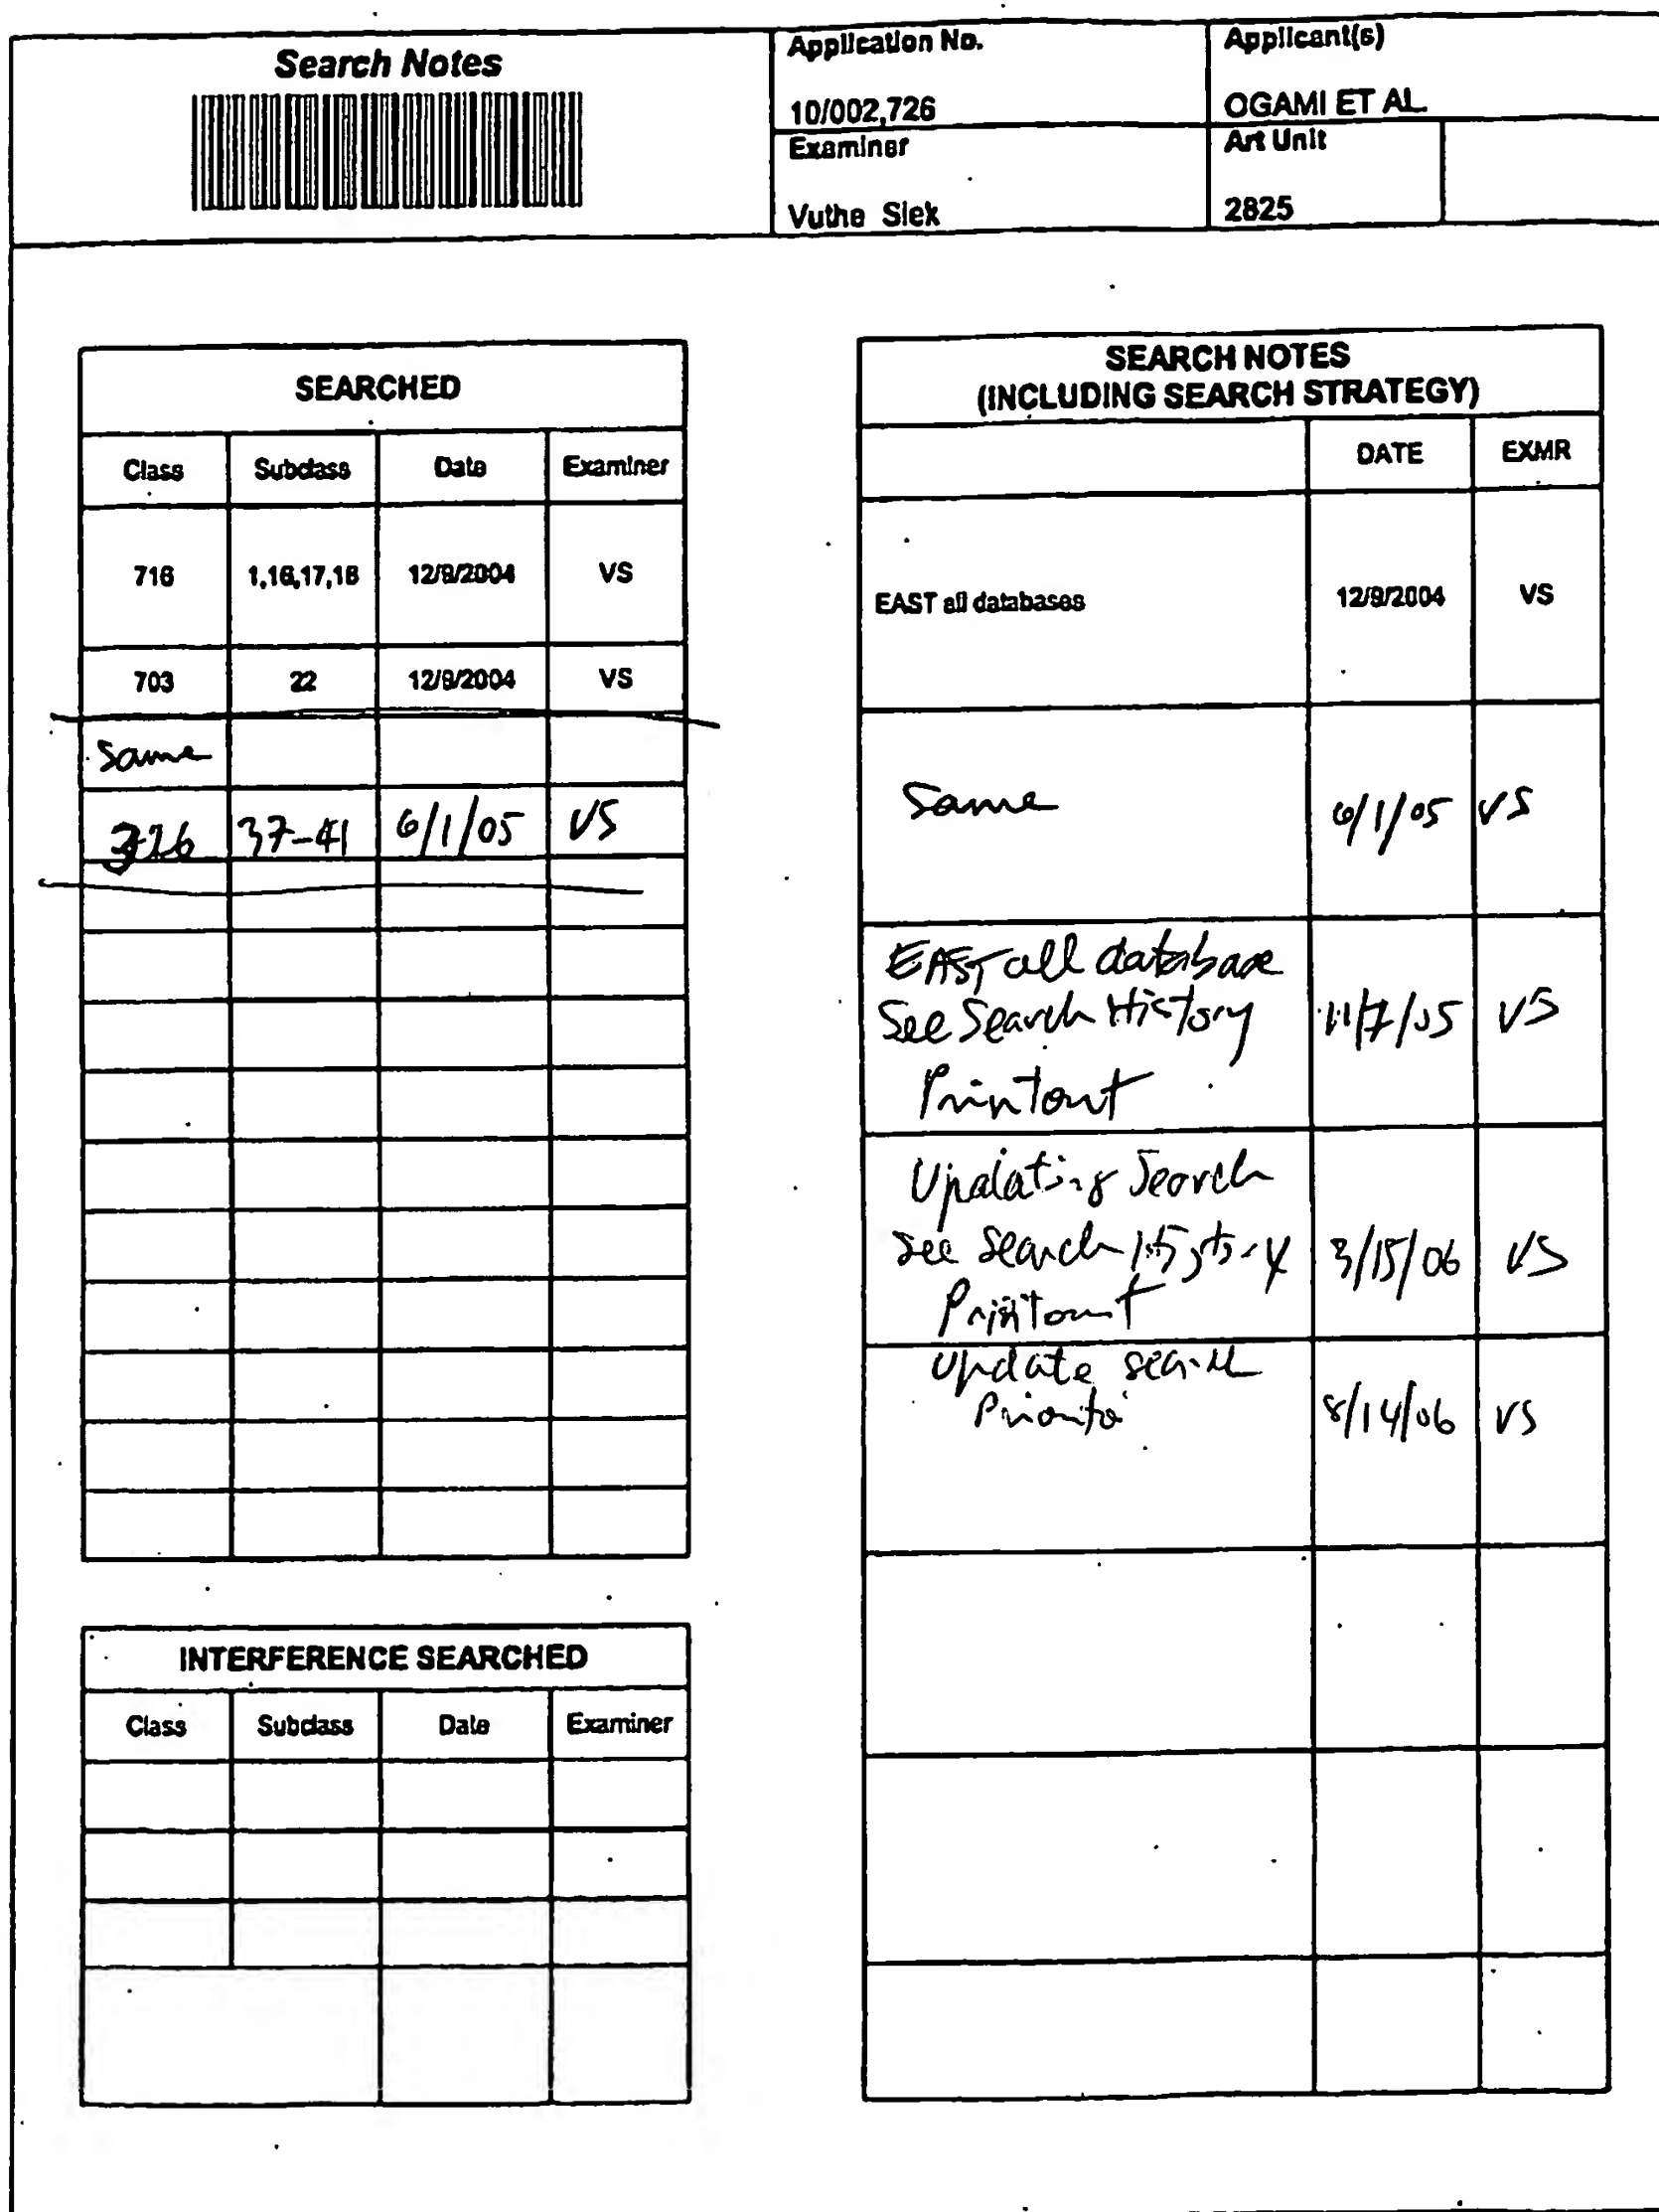 Search Notes
Application No.
10/002,726
Applicant(s)
OGAMI ET AL.
Examiner
Vuthe Siek
Art Unit
2825
SEARCHED
Class Subclass Date Examiner
716 1,16,17,18 12/9/2004 VS
703 22 12/9/2004 VS
Same
326 37-41 6/1/05 VS
INTERFERENCE SEARCHED
Class Subclass Date Examiner
SEARCH NOTES
(INCLUDING SEARCH STRATEGY)
DATE EXMR
EAST all databases 12/9/2004 VS
Same 6/1/05 VS
EAST all database
See Search History 11/7/05 VS
Printout
Updating Search
See Search History 3/15/06 VS
Printout
Update search
8/14/06 VS